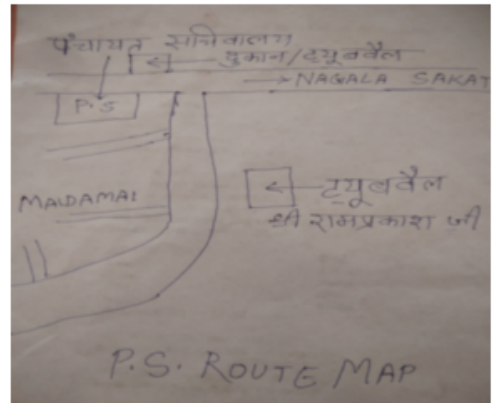 पंचायत सचिवालय
दुकान/ट्यूबवैल
NAGALA SAKAT
P.S
MALDAMAI
ट्यूबवैल
श्री रामप्रकाश जी
P.S. ROUTE MAP